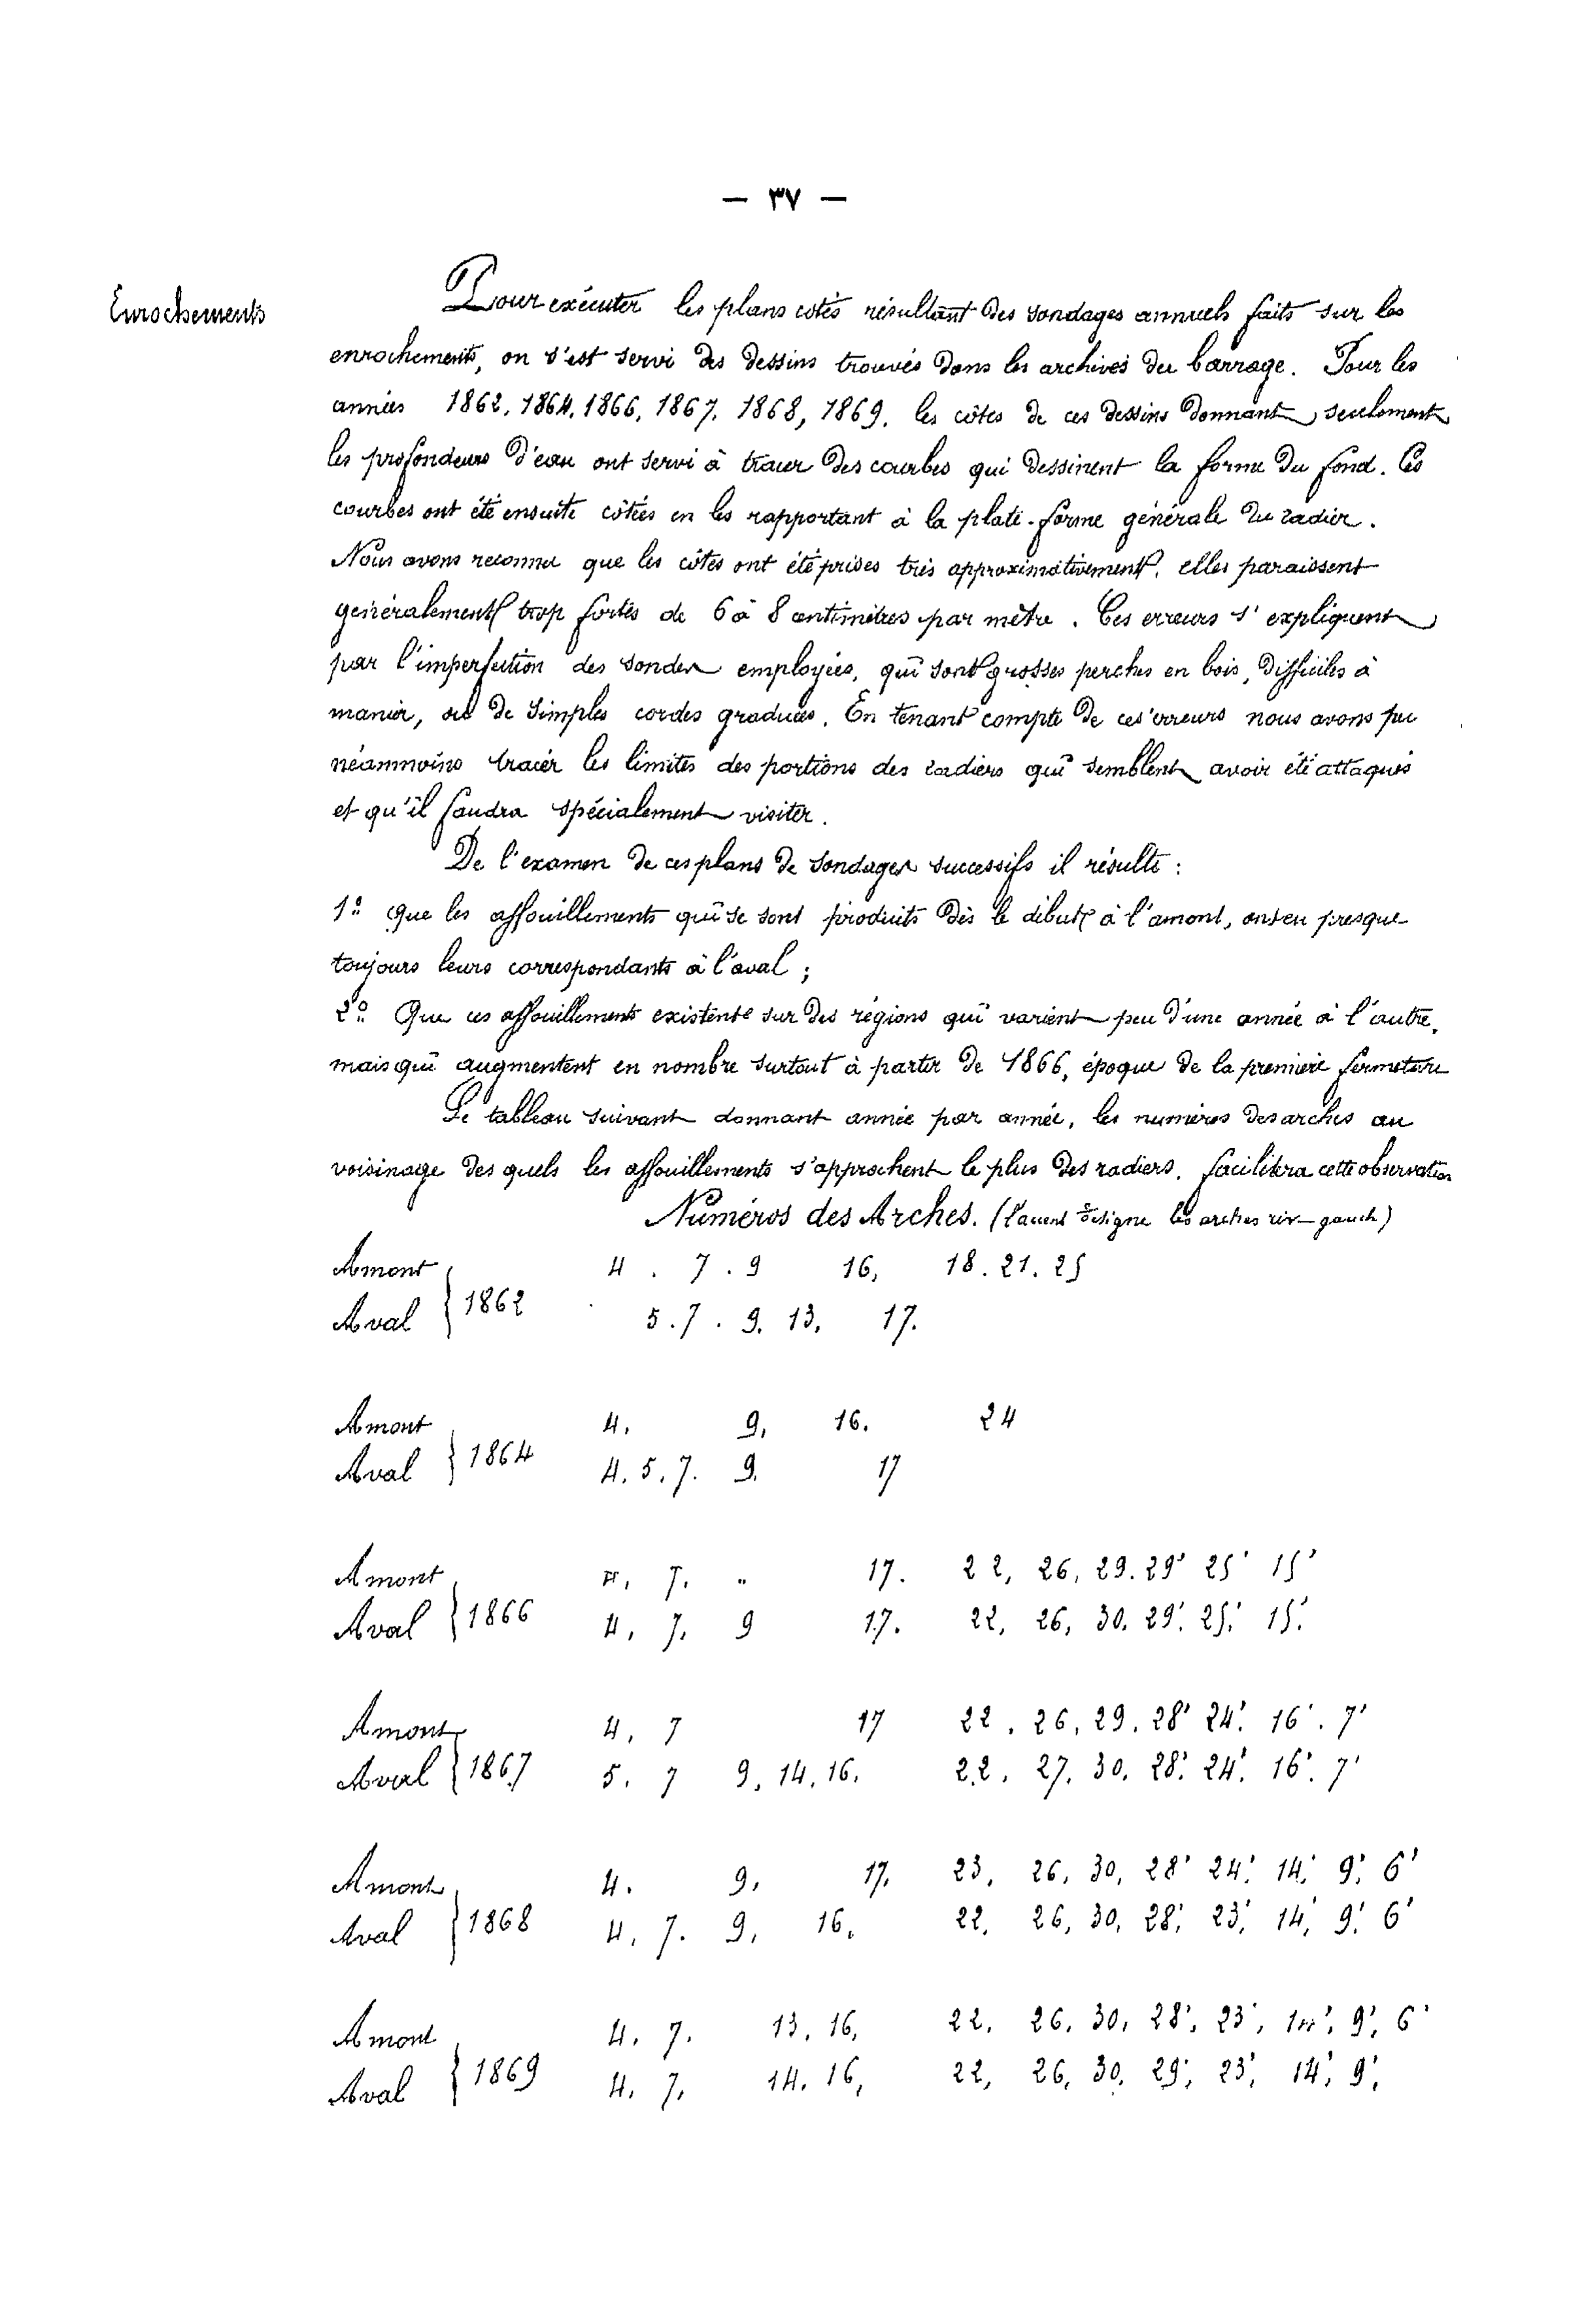 — ٣٧ —
Enrochements
Pour exécuter les plans cotés résultant des sondages annuels faits sur les
enrochements, on s'est servi des dessins trouvés dans les archives du barrage. Pour les
années 1862, 1864, 1866, 1867, 1868, 1869. les côtes de ces dessins donnant seulement
les profondeurs d'eau ont servi à tracer des courbes qui dessinent la forme du fond. Ces
courbes ont été ensuite côtées en les rapportant à la plate-forme générale du radier.
Nous avons reconnu que les côtes ont été prises très approximativement, elles paraissent
généralement trop fortes de 6 à 8 centimètres par mètre. Ces erreurs s'expliquent
par l'imperfection des sondes employées, qui sont grosses perches en bois, difficiles à
manier, ou de simples cordes graduées. En tenant compte de ces erreurs nous avons pu
néammoins tracer les limites des portions des radiers qui semblent avoir été attaqués
et qu'il faudra spécialement visiter.
De l'examen de ces plans de sondages successifs il résulte :
1º Que les affouillements qui se sont produits dès le début à l'amont, ont eu presque
toujours leurs correspondants à l'aval ;
2º Que ces affouillements existent sur des régions qui varient peu d'une année à l'autre,
mais qui augmentent en nombre surtout à partir de 1866, époque de la première fermeture
Le tableau suivant donnant année par année, les numéros des arches au
voisinage des quels les affouillements s'approchent le plus des radiers, facilitera cette observation
Numéros des Arches. (l'accent désigne les arches rive gauche)
Amont 4 . 7 . 9 16, 18. 21. 25
1862
Aval 5 . 7 . 9. 13, 17.
Amont 4, 9, 16. 24
1864
Aval 4. 5. 7. 9. 17
Amont 4, 7. " 17. 22, 26, 29. 29' 25' 15'
1866
Aval 4, 7, 9 17. 22, 26, 30. 29'. 25'. 15'.
Amont 4, 7 17 22. 26, 29. 28' 24'. 16'. 7'
1867
Aval 5. 7 9, 14, 16. 22. 27. 30. 28'. 24'. 16'. 7'
Amont 4. 9, 17. 23, 26, 30, 28' 24'. 14'. 9'. 6'
1868
Aval 4, 7. 9, 16, 22, 26, 30, 28', 23', 14', 9'. 6'
Amont 4. 7. 13, 16, 22, 26, 30, 28', 23', 9', 6'
1869
Aval 4. 7, 14. 16, 22, 26, 30, 29', 23', 14', 9',